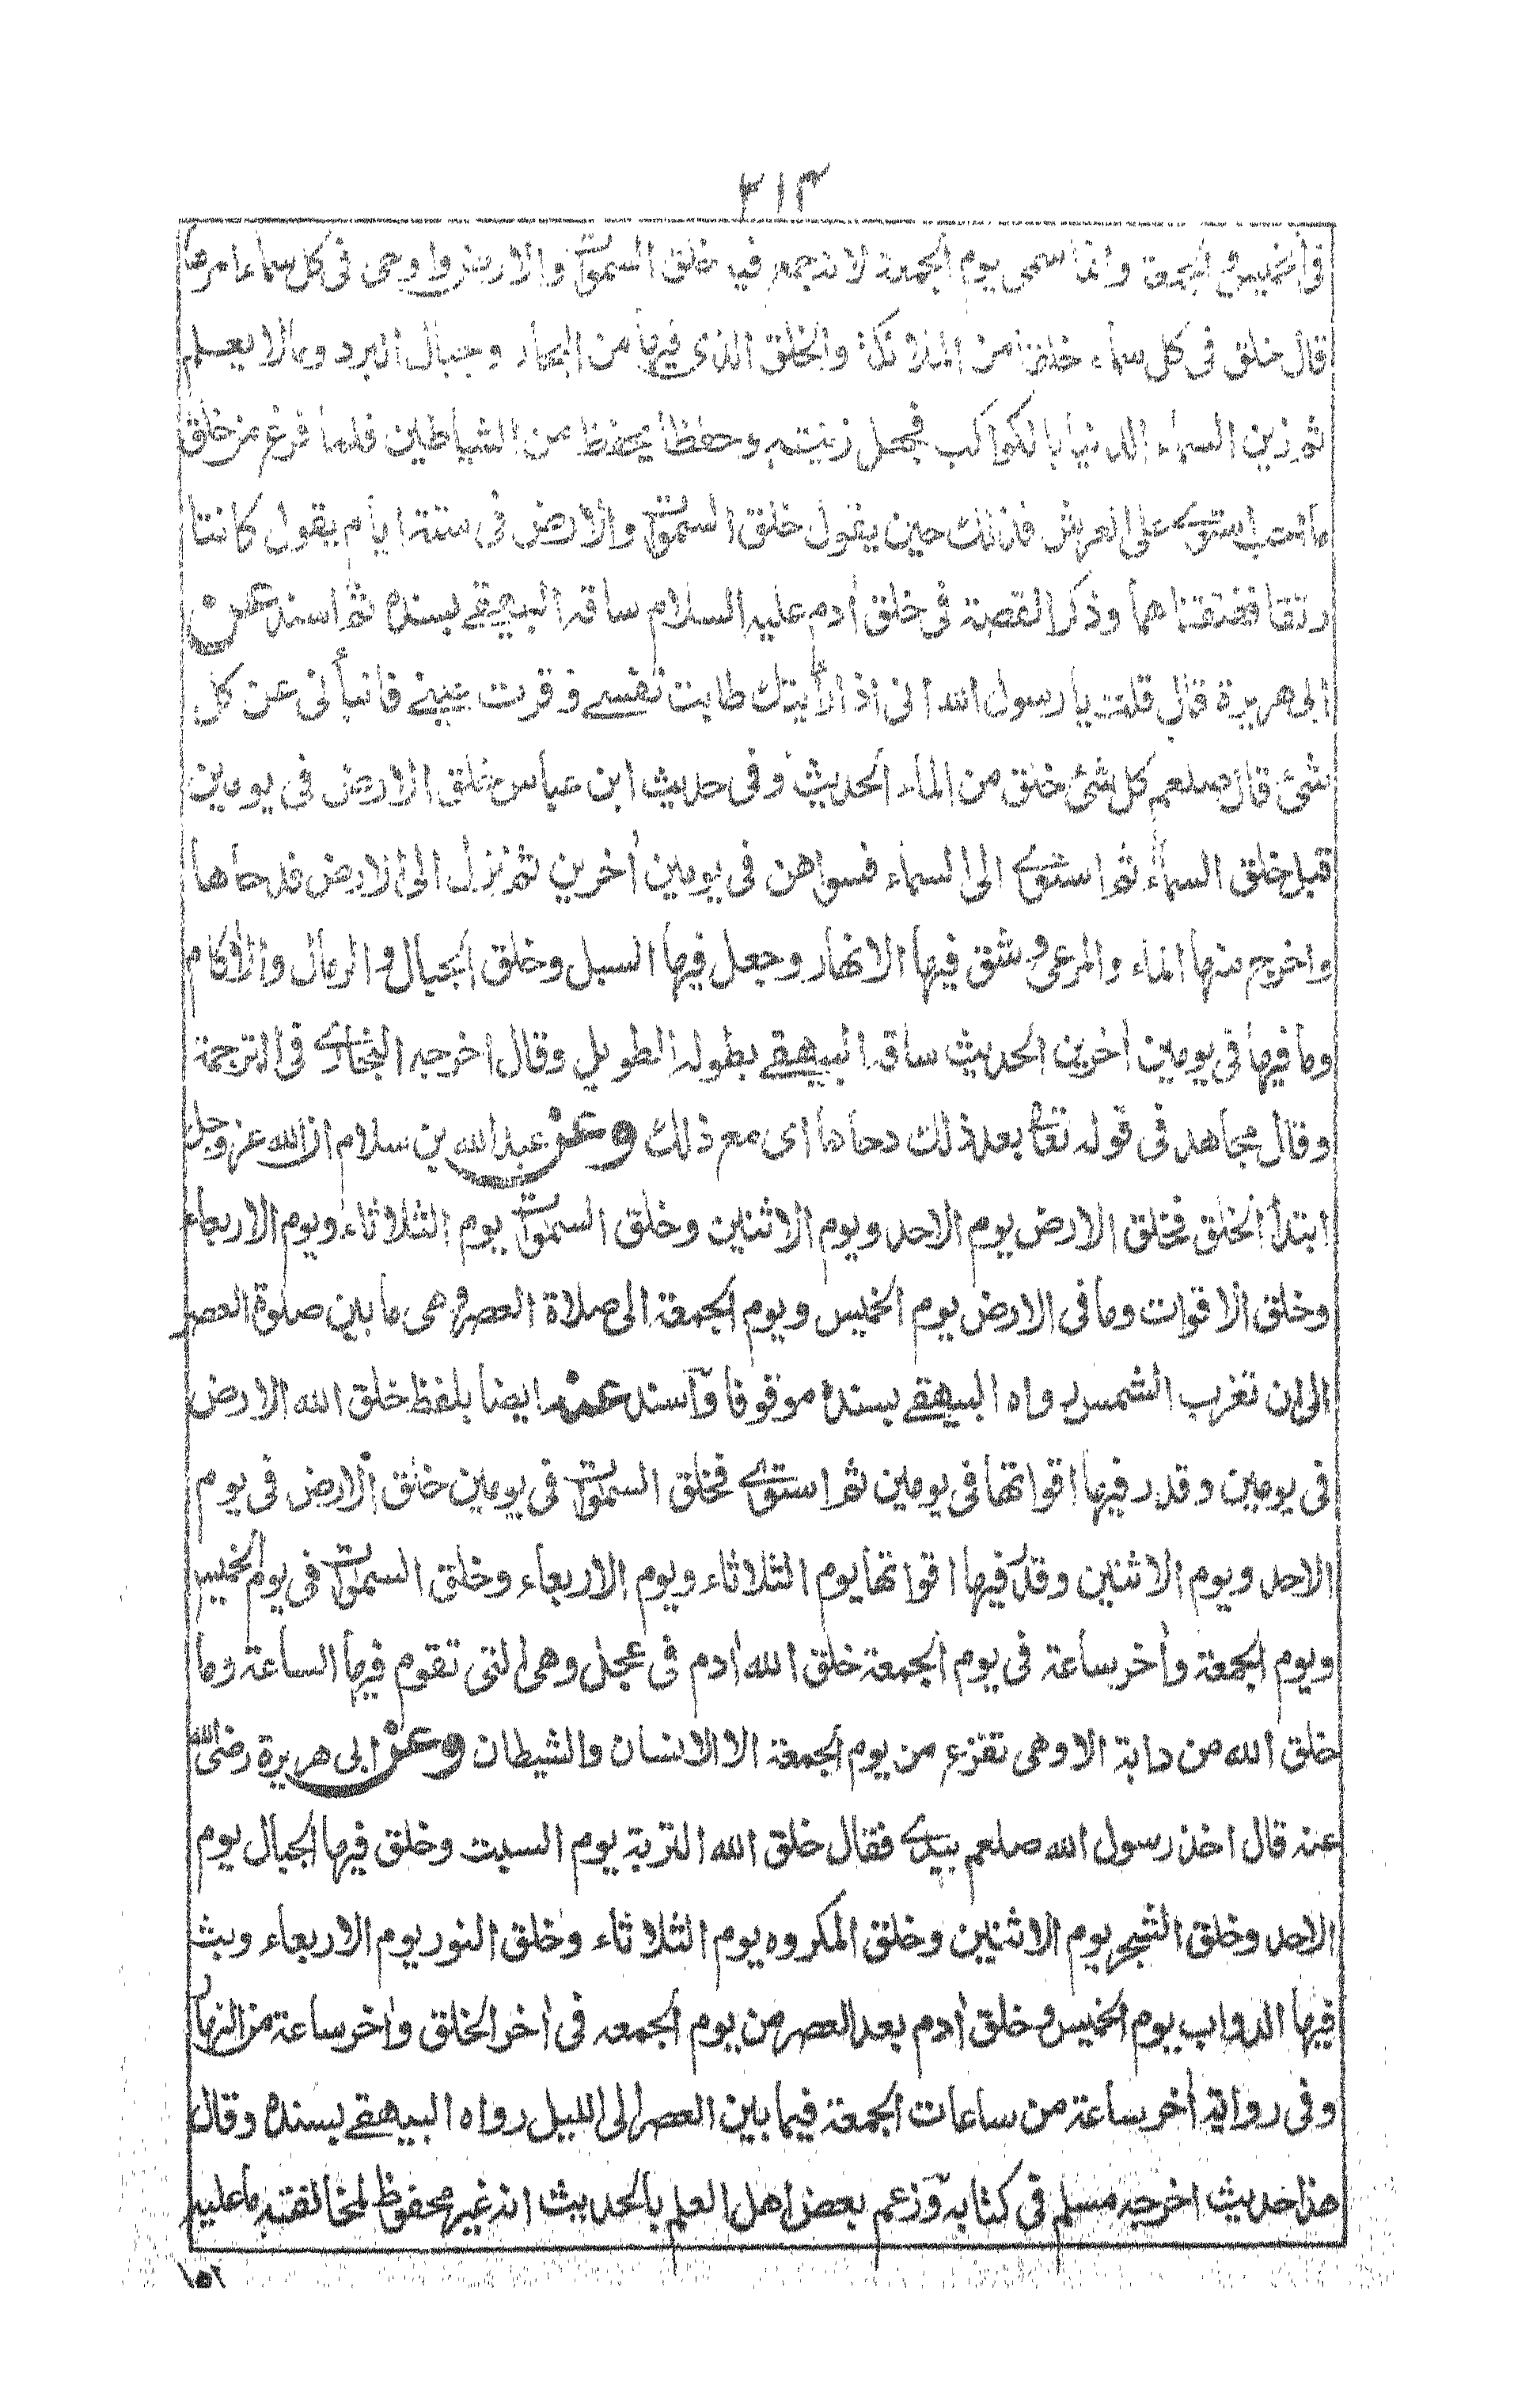 ٣١٣
فى الخميس والجمعة وانما سمى يوم الجمعة لانه جمع فيه خلق السموات والارض واوحى فى كل سماء امرها
قال خلق فى كل سماء خلقا من الملائكة والخلق الذى فيها من البحار وجبال البرد ومالا يعلم
ثم زين السماء الدنيا بالكواكب فجعل زينته وحفظا يحفظ من الشياطين فلما فرغ من خلق
ما احب استوى على العرش فذلك حين يقول خلق السموات والارض فى ستة ايام يقول كانتا
رتقا ففتقناهما وذكر القصة فى خلق أدم عليه السلام ساقه البيهقى بسنده ثم اسند عن
ابى هريرة قال قلت يا رسول الله انى اذا رأيتك طابت نفسى وقرت عينى فانبأنى عن كل
شئ قال صلعم كل شئ خلق من الماء الحديث وفى حديث ابن عباس خلق الارض فى يومين
قبل خلق السماء ثم استوى الى السماء فسواهن فى يومين أخرين ثم نزل الى الارض فدحاها
واخرج منها الماء والمرعى وشق فيها الانهار وجعل فيها السبل وخلق الجبال والرمال والاكام
وما فيها فى يومين أخرين الحديث ساقه البيهقى بطوله الطويل وقال اخرجه البخارى فى الترجمة
وقال مجاهد فى قوله تعا بعد ذلك دحاها اى مع ذلك وعن عبد الله بن سلام ان الله عز وجل
ابتدأ الخلق فخلق الارض يوم الاحد ويوم الاثنين وخلق السموات يوم الثلاثاء ويوم الاربعاء
وخلق الاقوات وما فى الارض يوم الخميس ويوم الجمعة الى صلاة العصر وهى ما بين صلوة العصر
الى ان تغرب الشمس رواه البيهقى بسنده موقوفا واسند عنه ايضا بلفظ خلق الله الارض
فى يومين وقدر فيها اقواتها فى يومين ثم استوى فخلق السموات فى يومين خلق الارض فى يوم
الاحد ويوم الاثنين وقدر فيها اقواتها يوم الثلاثاء ويوم الاربعاء وخلق السموات فى يوم الخميس
ويوم الجمعة وأخر ساعة فى يوم الجمعة خلق الله أدم فى عجل وهى التى تقوم فيها الساعة وما
خلق الله من دابة الا وهى تفزع من يوم الجمعة الا الانسان والشيطان وعن ابى هريرة رضى الله
عنه قال اخذ رسول الله صلعم بيدى فقال خلق الله التربة يوم السبت وخلق فيها الجبال يوم
الاحد وخلق الشجر يوم الاثنين وخلق المكروه يوم الثلاثاء وخلق النور يوم الاربعاء وبث
فيها الدواب يوم الخميس وخلق أدم بعد العصر من يوم الجمعه فى أخر الخلق وأخر ساعة من النهار
وفى رواية أخر ساعة من ساعات الجمعة فيما بين العصر الى الليل رواه البيهقى بسنده وقال
هذا حديث اخرجه مسلم فى كتابه وزعم بعض اهل العلم بالحديث انه غير محفوظ لمخالفته ما عليه